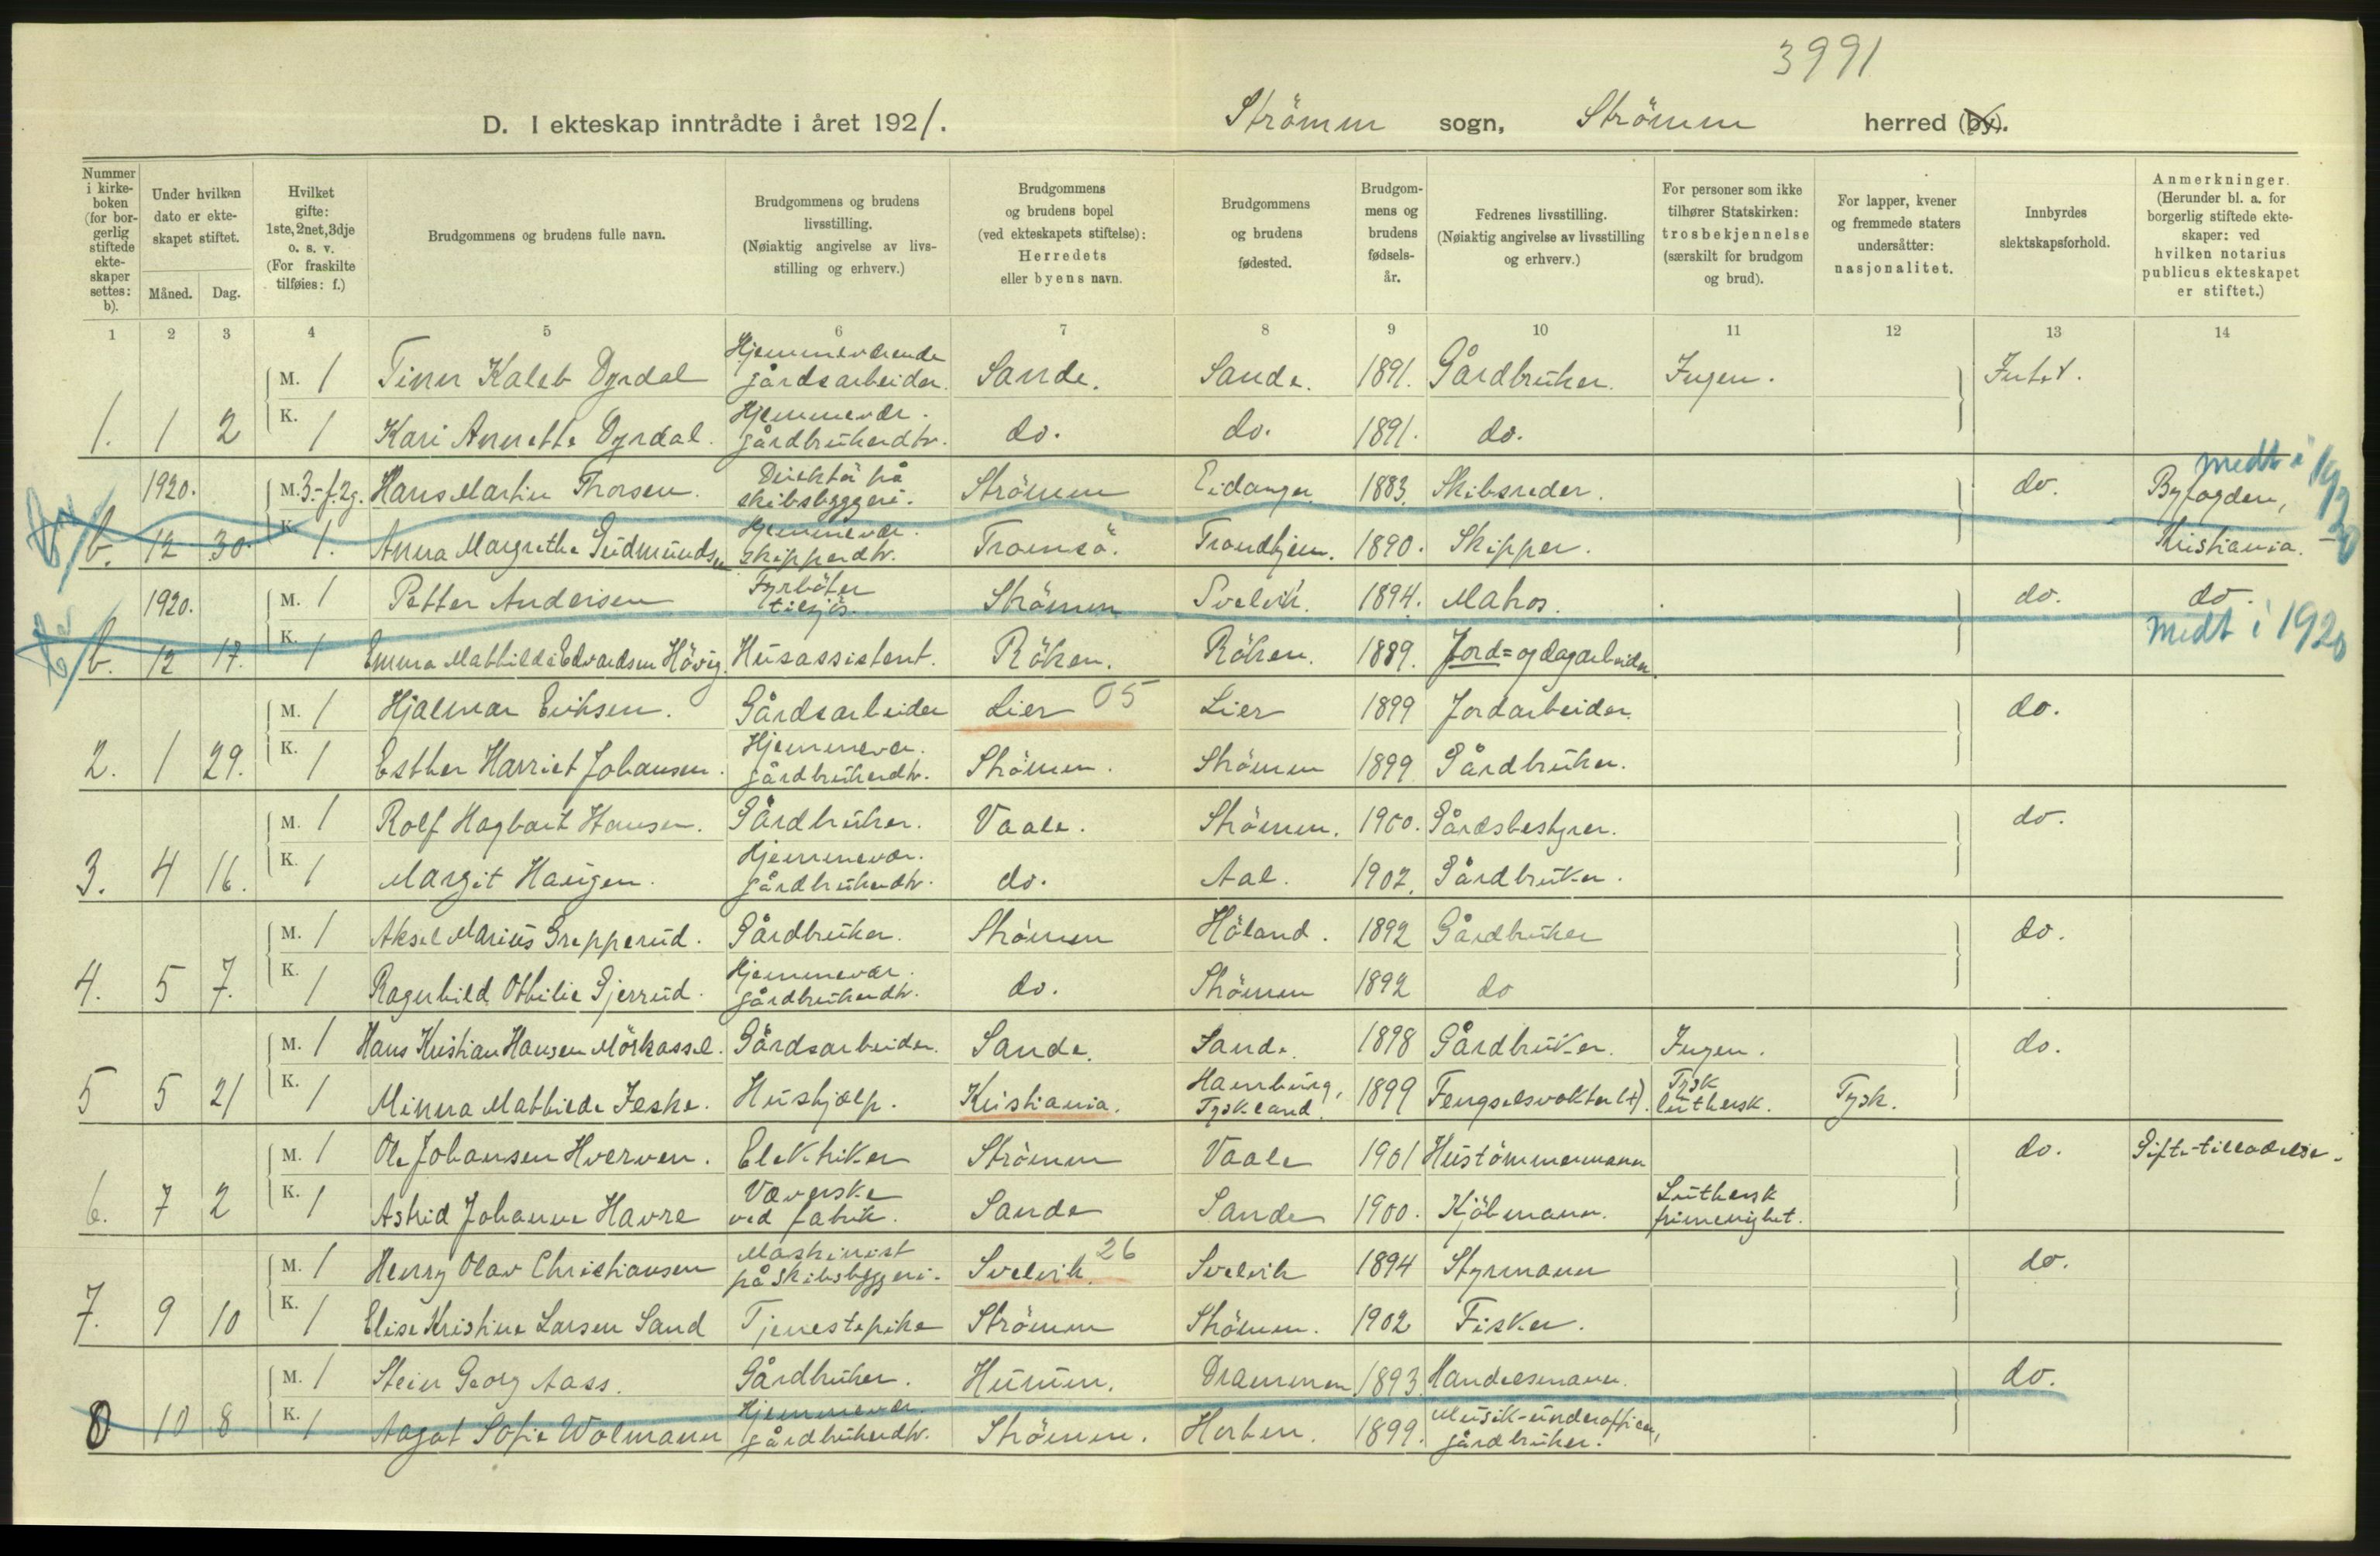 3991
D. I ekteskap inntrådte i året 1921. Strömm sogn, Strömm herred (by).
Nummer i kirkeboken (for borgerlig stiftede ekteskaper settes: b).
Under hvilken dato er ekteskapet stiftet.
Måned. Dag.
Hvilket gifte: 1ste, 2net, 3dje o. s. v. (For fraskilte tilføies: f.)
Brudgommens og brudens fulle navn.
Brudgommens og brudens livsstilling. (Nøiaktig angivelse av livsstilling og erhverv.)
Brudgommens og brudens bopel (ved ekteskapets stiftelse): Herredets eller byens navn.
Brudgommens og brudens fødested.
Brudgommens og brudens fødselsår.
Fedrenes livsstilling. (Nøiaktig angivelse av livsstilling og erhverv.)
For personer som ikke tilhører Statskirken: trosbekjennelse (særskilt for brudgom og brud).
For lapper, kvener og fremmede staters undersåtter: nasjonalitet.
Innbyrdes slektskapsforhold.
Anmerkninger. (Herunder bl. a. for borgerlig stiftede ekteskaper: ved hvilken notarius publicus ekteskapet er stiftet.)
1 2 3 4 5 6 7 8 9 10 11 12 13 14
M. 1 Finn Kaleb Dyrdal Hjemmeværende gårdsarbeider. Sande. Sande. 1891. Gårdbruker. Ingen. Intet.
1. 1 2 K. 1 Kari Annette Dyrdal. Hjemmevær. gårdbrukerdtr. do. do. 1891. do.
1920. M. 3.-f. 2g. Hans Martin Thorsen. Direktör på skibsbyggeri. Strömm Eidanger 1883. Skibsreder. do. Byfogden, medt i 1920
b. 12 30. K. 1. Anna Margrethe Gudmundsen Hjemmevær. skipperdtr. Tromsö. Trondhjem. 1890. Skipper. Kristiania.
1920. M. 1 Petter Andersen Fyrböter tilsjös. Strömm Svelvik. 1894. Matros. do. do.
b. 12 17. K. 1 Emma Mathilde Edvardsen Hövig. Husassistent. Röken. Röken. 1889. Jord= og dagarbeider. medt i 1920
M. 1 Hjalmar Eriksen. Gårdsarbeider Lier 05 Lier 1899 Jordarbeider. do.
2. 1 29. K. 1 Esther Harriet Johansen. Hjemmevær. gårdbrukerdtr. Strömm. Strömm 1899 Gårdbruker.
M. 1 Rolf Hagbart Hansen. Gårdbruker. Vaale. Strömm. 1900. Gårdsbestyrer. do.
3. 4 16. K. 1 Margit Haugen. Hjemmevær. gårdbrukerdtr. do. Aal. 1902. Gårdbruker.
M. 1 Aksel Marius Grepperud. Gårdbruker. Strömm Höland. 1892 Gårdbruker do.
4. 5 7. K. 1 Ragnhild Othilie Gjerrud. Hjemmevær. gårdbrukerdtr. do. Strömm 1892 do
M. 1 Hans Kristian Hansen Mörkassel. Gårdsarbeider. Sande. Sande. 1898 Gårdbruker. Ingen. do.
5 5 21 K. 1 Minna Mathilde Jeske. Hushjælp. Kristiania. Hamburg, Tyskland. 1899 Fengselsvokter (+). Tysk luthersk. Tysk.
M. 1 Ole Johansen Hverven. Elektriker Strömm Vaale 1901 Hustömmermann do. Gifte-tilladelse.
6. 7 2 K. 1 Astrid Johanne Havre Væverske ved fabrik. Sande Sande 1900. Kjöbmann. Luthersk frimenighet.
M. 1 Henry Olav Christiansen Maskinist på skibsbyggeri. Svelvik. 26 Svelvik 1894 Styrmann do.
7. 9 10 K. 1 Elise Kristine Larsen Sand Tjenestepike Strömm Strömm. 1902 Fisker.
M. 1 Stein Georg Aass. Gårdbruker. Hurum. Drammen 1893. Handelsmann. do.
8 10 8 K. 1 Aagot Sofie Wolmann Hjemmevær. gårdbrukerdtr. Strömm. Horten. 1899. Musik-underofficer, gårdbruker.